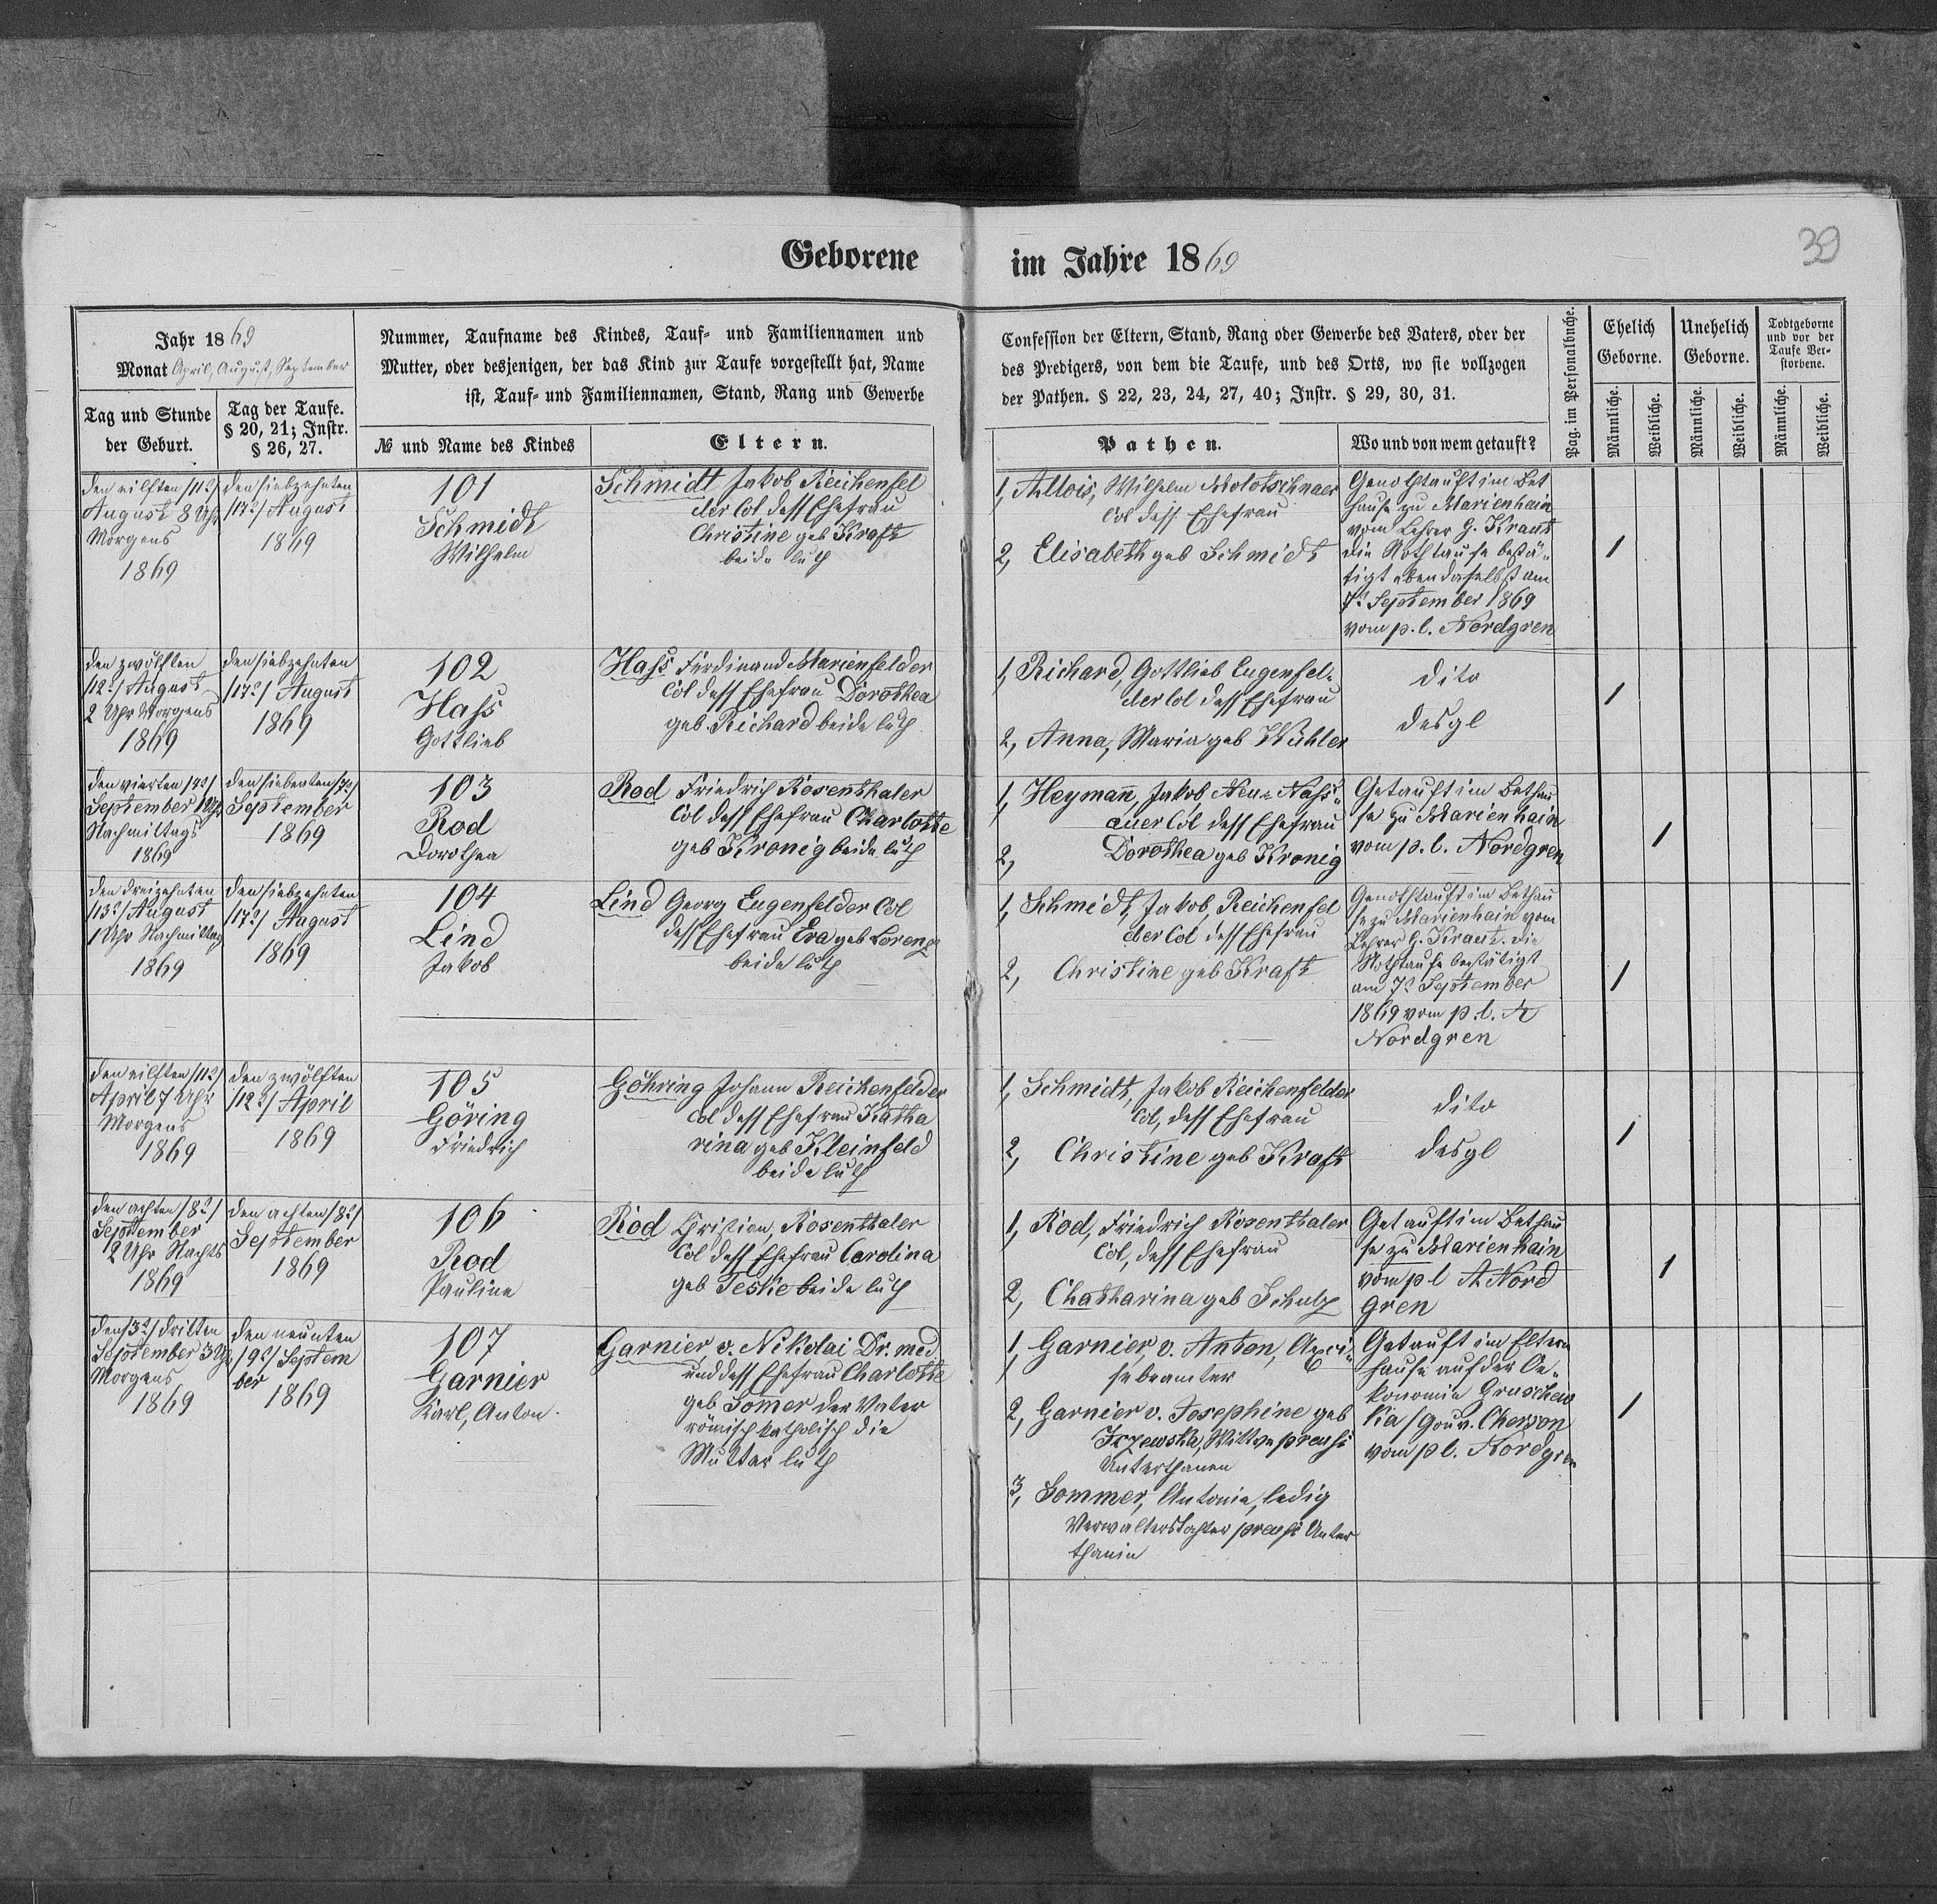 Geborene im Jahre 1869
39
Jahr 1869
Monat April, August, September
Tag und Stunde
der Geburt.
Tag der Taufe.
§ 20, 21; Instr.
§ 26, 27.
Nummer, Taufname des Kindes, Tauf- und Familiennamen und
Mutter, oder desjenigen, der das Kind zur Taufe vorgestellt hat, Name
ist, Tauf- und Familiennamen, Stand, Rang und Gewerbe
№ und Name des Kindes
Eltern.
Confession der Eltern, Stand, Rang oder Gewerbe des Vaters, oder der
des Predigers, von dem die Taufe, und des Orts, wo sie vollzogen
der Pathen. § 22, 23, 24, 27, 40; Instr. § 29, 30, 31.
Pathen.
Wo und von wem getauft?
Pag. im Personalbuche.
Ehelich
Geborne.
Unehelich
Geborne.
Todtgeborne
und vor der
Taufe Ver-
storbene.
Männliche.
Weibliche.
Männliche.
Weibliche.
Männliche.
Weibliche.
den eilften /11?/
August 8 Uhr
Morgens
1869
den siebzehnten
/17?/ August
1869
101
Schmidt
Wilhelm
Schmidt Jakob Reichenfel
der Col dess Ehefrau
Christine geb Kraft
beide luth
1, Altois, Wilhelm Molotschnaer
Col dess Ehefrau
2, Elisabeth geb Schmidt
Genothtauft im Bet
hause zu Marienhain
vom Lehrer G. Kraut
die Nothtaufe bestä-
tigt ebendaselbst am
7? September 1869
vom p. l. Nordgren
1
den zwölften
/12?/ August
2 Uhr Morgens
1869
den siebzehnten
/17?/ August
1869
102
Hass
Gottlieb
Hass Ferdinand Marienfelder
Col dess Ehefrau Dorothea
geb Reichard beide luth
1, Richard, Gottlieb Eugenfel-
der Col dess Ehefrau
2, Anna, Maria geb Wühler
dito
desgl
1
den vierten /4?/
September 1 Uhr
Nachmittags
1869
den siebenten /7?/
September
1869
103
Rod
Dorothea
Rod Friedrich Rosenthaler
Col dess Ehefrau Charlotte
geb Kronig beide luth
1, Heymañ, Jakob Neu-Nass-
auer Col dess Ehefrau
2, Dorothea geb Kronig
Getauft im Bethau
se zu Marienhain
vom p. l. Nordgren
1
den dreizehnten
/13?/ August
1 Uhr Nachmittag
1869
den siebzehnten
/17?/ August
1869
104
Lind
Jakob
Lind Georg Eugenfelder Col
dess Ehefrau Eva geb Lorenz
beide luth
1, Schmidt, Jakob, Reichenfel
der Col dess Ehefrau
2, Christine geb Kraft
Genothtauft im Bethau
se zu Marienhain vom
Lehrer G. Kraut. die
Nothtaufe bestätigt
am 7? September
1869 vom p. l. A
Nordgren
1
den eilften /11?/
April 7 Uhr
Morgens
1869
den zwölften
/12?/ April
1869
105
Göring
Friedrich
Göhring Johann Reichenfelder
Col dess Ehefrau Katha
rina geb Kleinfeld
beide luth
1, Schmidt, Jakob Reichenfelder
Col, dess Ehefrau
2, Christine geb Kraft
dito
desgl
1
den achten /8?/
September
2 Uhr Nachts
1869
den achten /8?/
September
1869
106
Rod
Pauline
Rod Christian, Rosenthaler
Col dess Ehefrau Carolina
geb Teske beide luth
1, Rod, Friedrich Rosenthaler
Col, dess Ehefrau
2, Chatharina geb Schulz
Getauft im Bethau
se zu Marienhain
vom p l A Nord
gren
1
den /3?/ dritten
September 3 Uhr
Morgens
1869
den neunten
/9?/ Septem
ber 1869
107
Garnier
Karl, Anton.
Garnier v. Nikolai Dr. med
und dess Ehefrau Charlotte
geb Somer der Vater
römisch katholisch die
Mutter luth
1, Garnier, v. Anton, Acci-
sebeamter
2, Garnier v. Josephine geb
Wittwe preuss
Unterthanen
3, Sommer, Antonie, ledig
Verwalterstochter preuss Unter
thanin
Getauft im Eltern
hause auf der Oe-
konomie Gruschew
ka /Gouv. Cherson
vom p l. Nordgren
1